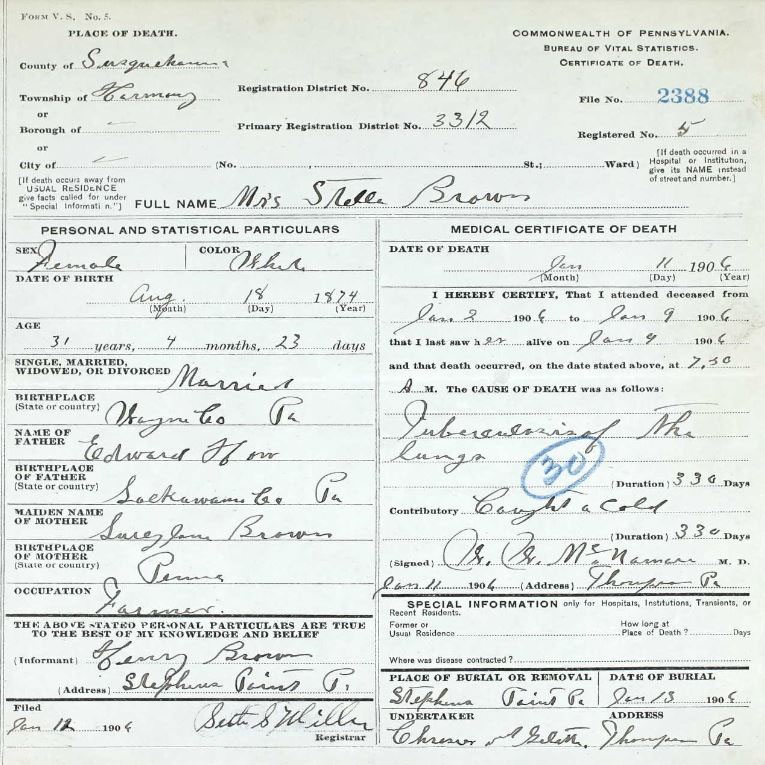 FORM V. S. No. 5.
PLACE OF DEATH.
County of Susquehanna
Township of Harmony
or
Borough of
or
City of
Registration District No. 846
Primary Registration District No. 3312
(No. , St.; Ward)
COMMONWEALTH OF PENNSYLVANIA.
BUREAU OF VITAL STATISTICS.
CERTIFICATE OF DEATH.
File No. 2388
Registered No. 5
[If death occurred in a Hospital or Institution, give its NAME instead of street and number.]
[If death occurs away from USUAL RESIDENCE give facts called for under "Special Informati n."]
FULL NAME Mrs Stella Brown
PERSONAL AND STATISTICAL PARTICULARS
SEX Female
COLOR White
DATE OF BIRTH
Aug. 18 1874
(Month) (Day) (Year)
AGE
31 years, 4 months, 23 days
SINGLE, MARRIED, WIDOWED, OR DIVORCED Married
BIRTHPLACE
(State or country) Wayne Co Pa
NAME OF FATHER Edward
BIRTHPLACE OF FATHER
(State or country) Lackawanna Co Pa
MAIDEN NAME OF MOTHER Brown
BIRTHPLACE OF MOTHER
(State or country) Penna
OCCUPATION Farmer.
THE ABOVE STATED PERSONAL PARTICULARS ARE TRUE TO THE BEST OF MY KNOWLEDGE AND BELIEF
(Informant) Henry Brown
(Address) Stephens Point Pa
Filed
Jan 12 1906 Seth S Miller
Registrar
MEDICAL CERTIFICATE OF DEATH
DATE OF DEATH
Jan 11 1906
(Month) (Day) (Year)
I HEREBY CERTIFY, That I attended deceased from
Jan 2 1906 to Jan 9 1906
that I last saw her alive on Jan 9 1906
and that death occurred, on the date stated above, at 7.30
A M. The CAUSE OF DEATH was as follows:
Tuberculosis of the
lungs
30
(Duration) 330 Days
Contributory Caught a Cold
(Duration) 330 Days
(Signed) W. W. McNamara M. D.
Jan 11 1906 (Address) Thompson Pa
SPECIAL INFORMATION only for Hospitals, Institutions, Transients, or Recent Residents.
Former or Usual Residence
How long at Place of Death? Days
Where was disease contracted?
PLACE OF BURIAL OR REMOVAL
Stephens Point Pa
DATE OF BURIAL
Jan 13 1906
UNDERTAKER
ADDRESS
Thompson Pa